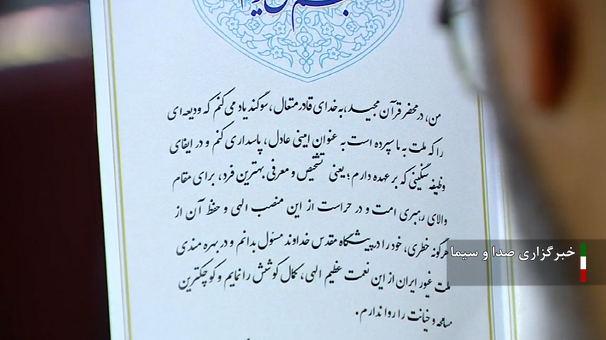 من، در محضر قرآن مجید، به خدای قادر متعال، سوگند یاد می‌کنم که ودیعه‌ای
را که ملت به ما سپرده است به عنوان امینی عادل، پاسداری کنم و در ایفای
وظیفه سنگینی که بر عهده دارم؛ یعنی تشخیص و معرفی بهترین فرد، برای مقام
والای رهبری امت و در حراست از این منصب الهی و حفظ آن از
هرگونه خطری، خود را در پیشگاه مقدس خداوند مسئول بدانم و در بهره مندی
ملت غیور ایران از این نعمت عظیم الهی، کمال کوشش را نمایم و کوچکترین
مسامحه و خیانت را روا ندارم.
خبرگزاری صدا و سیما